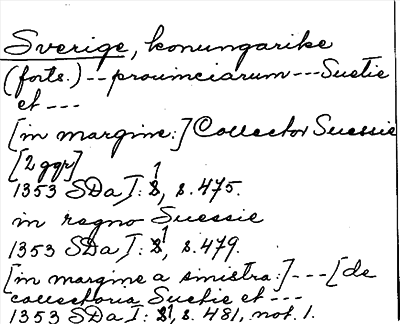 Sverige, konungarike
(forts.) -- prouinciarum --- Suetie
et ---
[in margine:] Collector Suessie
[2 ggr]
1353 SDa I: 1, s. 475.
in regno Suessie
1353 SDa I: 1, s. 479.
[in margine a sinistra:] --- [de
collectoria Suetie et ---
1353 SDa I: 1, s. 481, not. 1.